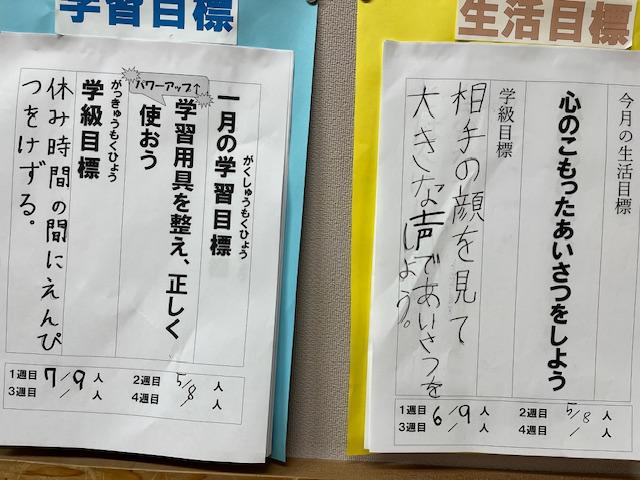 学習目標
一月の学習目標
がくしゅうもくひょう
パワーアップ↑
学習用具を整え、正しく
使おう
学級目標
がっきゅうもくひょう
休み時間の間にえんぴ
つをけずる。
1週目 7/9人
2週目 5/8人
3週目 / 人
4週目 / 人
生活目標
今月の生活目標
心のこもったあいさつをしよう
学級目標
相手の顔を見て
大きな声であいさつを
しよう。
1週目 6/9人
2週目 5/8人
3週目 / 人
4週目 / 人